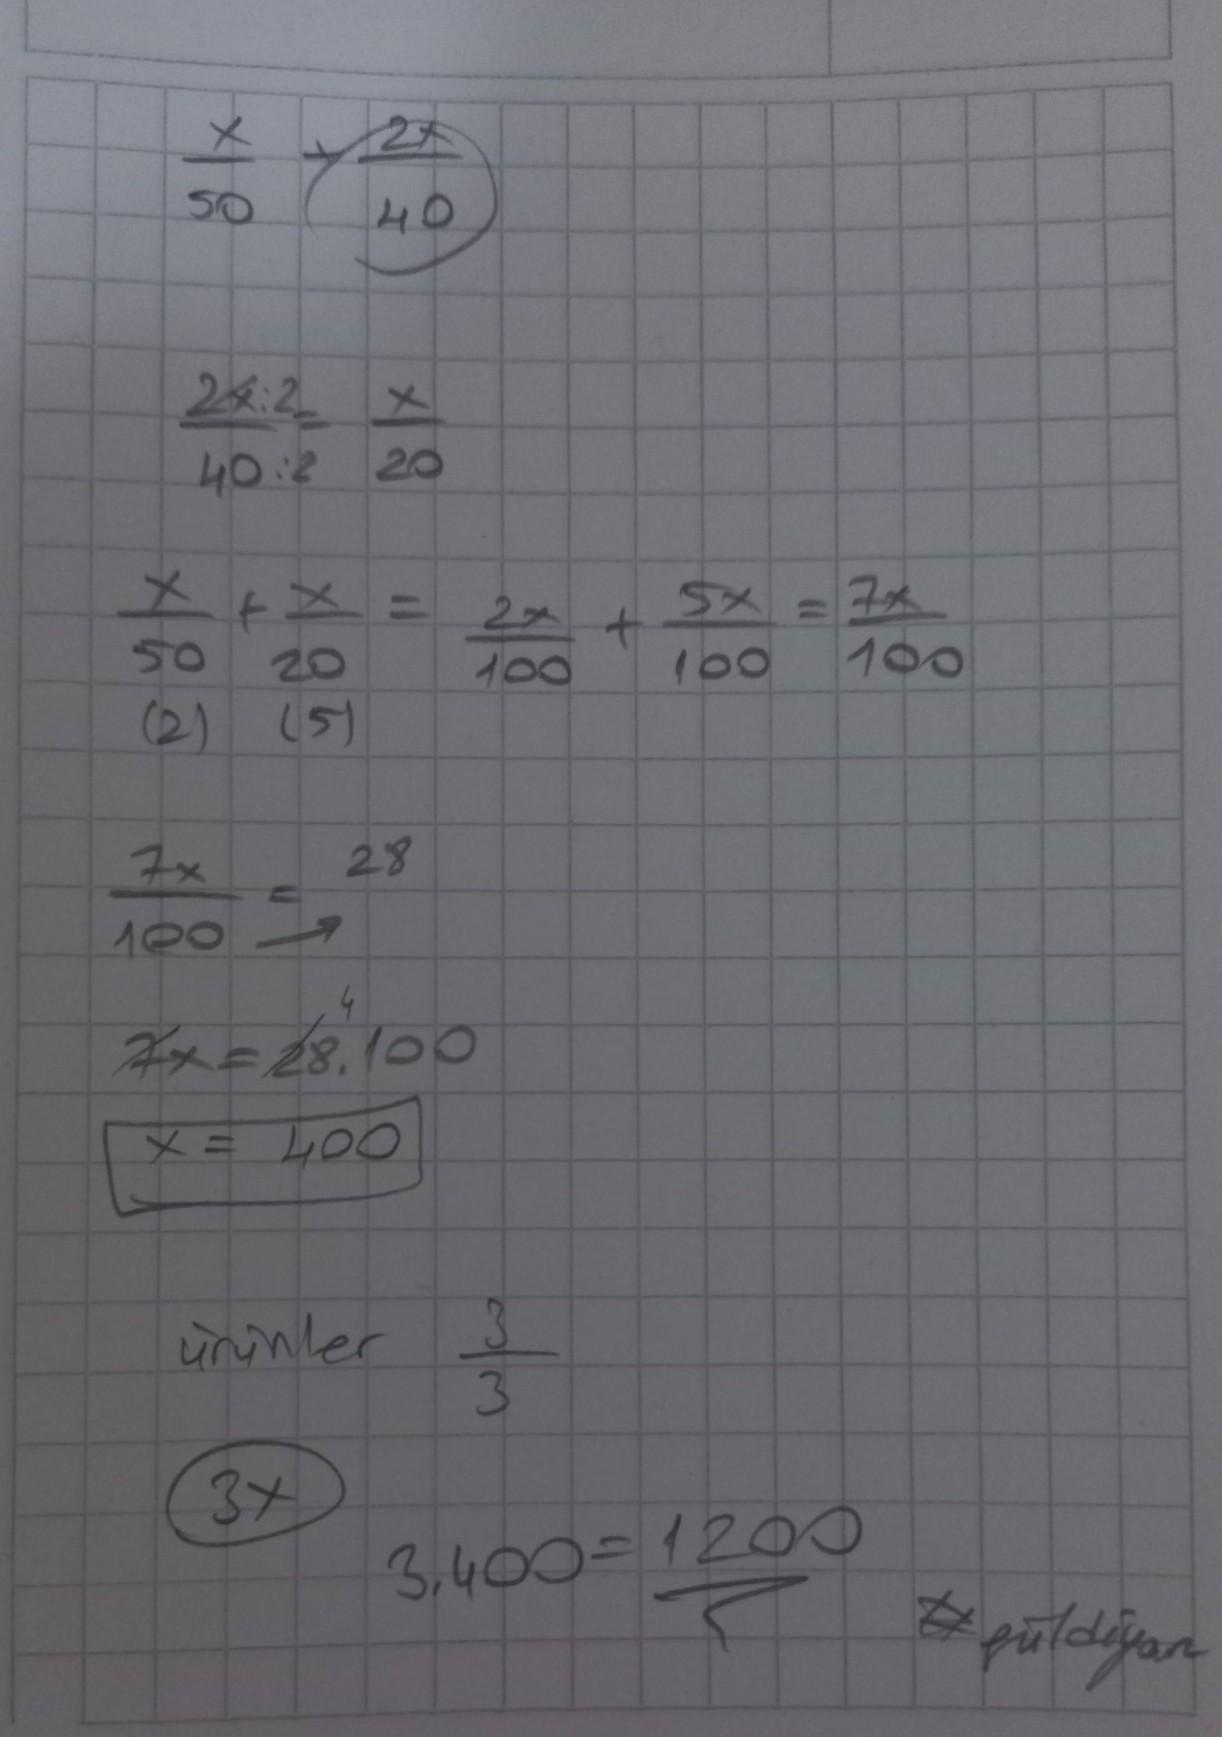 x/50 + 2x/40
2x:2/40:2 = x/20
x/50 + x/20 = 2x/100 + 5x/100 = 7x/100
(2) (5)
7x/100 = 28
4
7x = 28.100
x = 400
ürünler 3/3
3x
3.400 = 1200
güldiyar